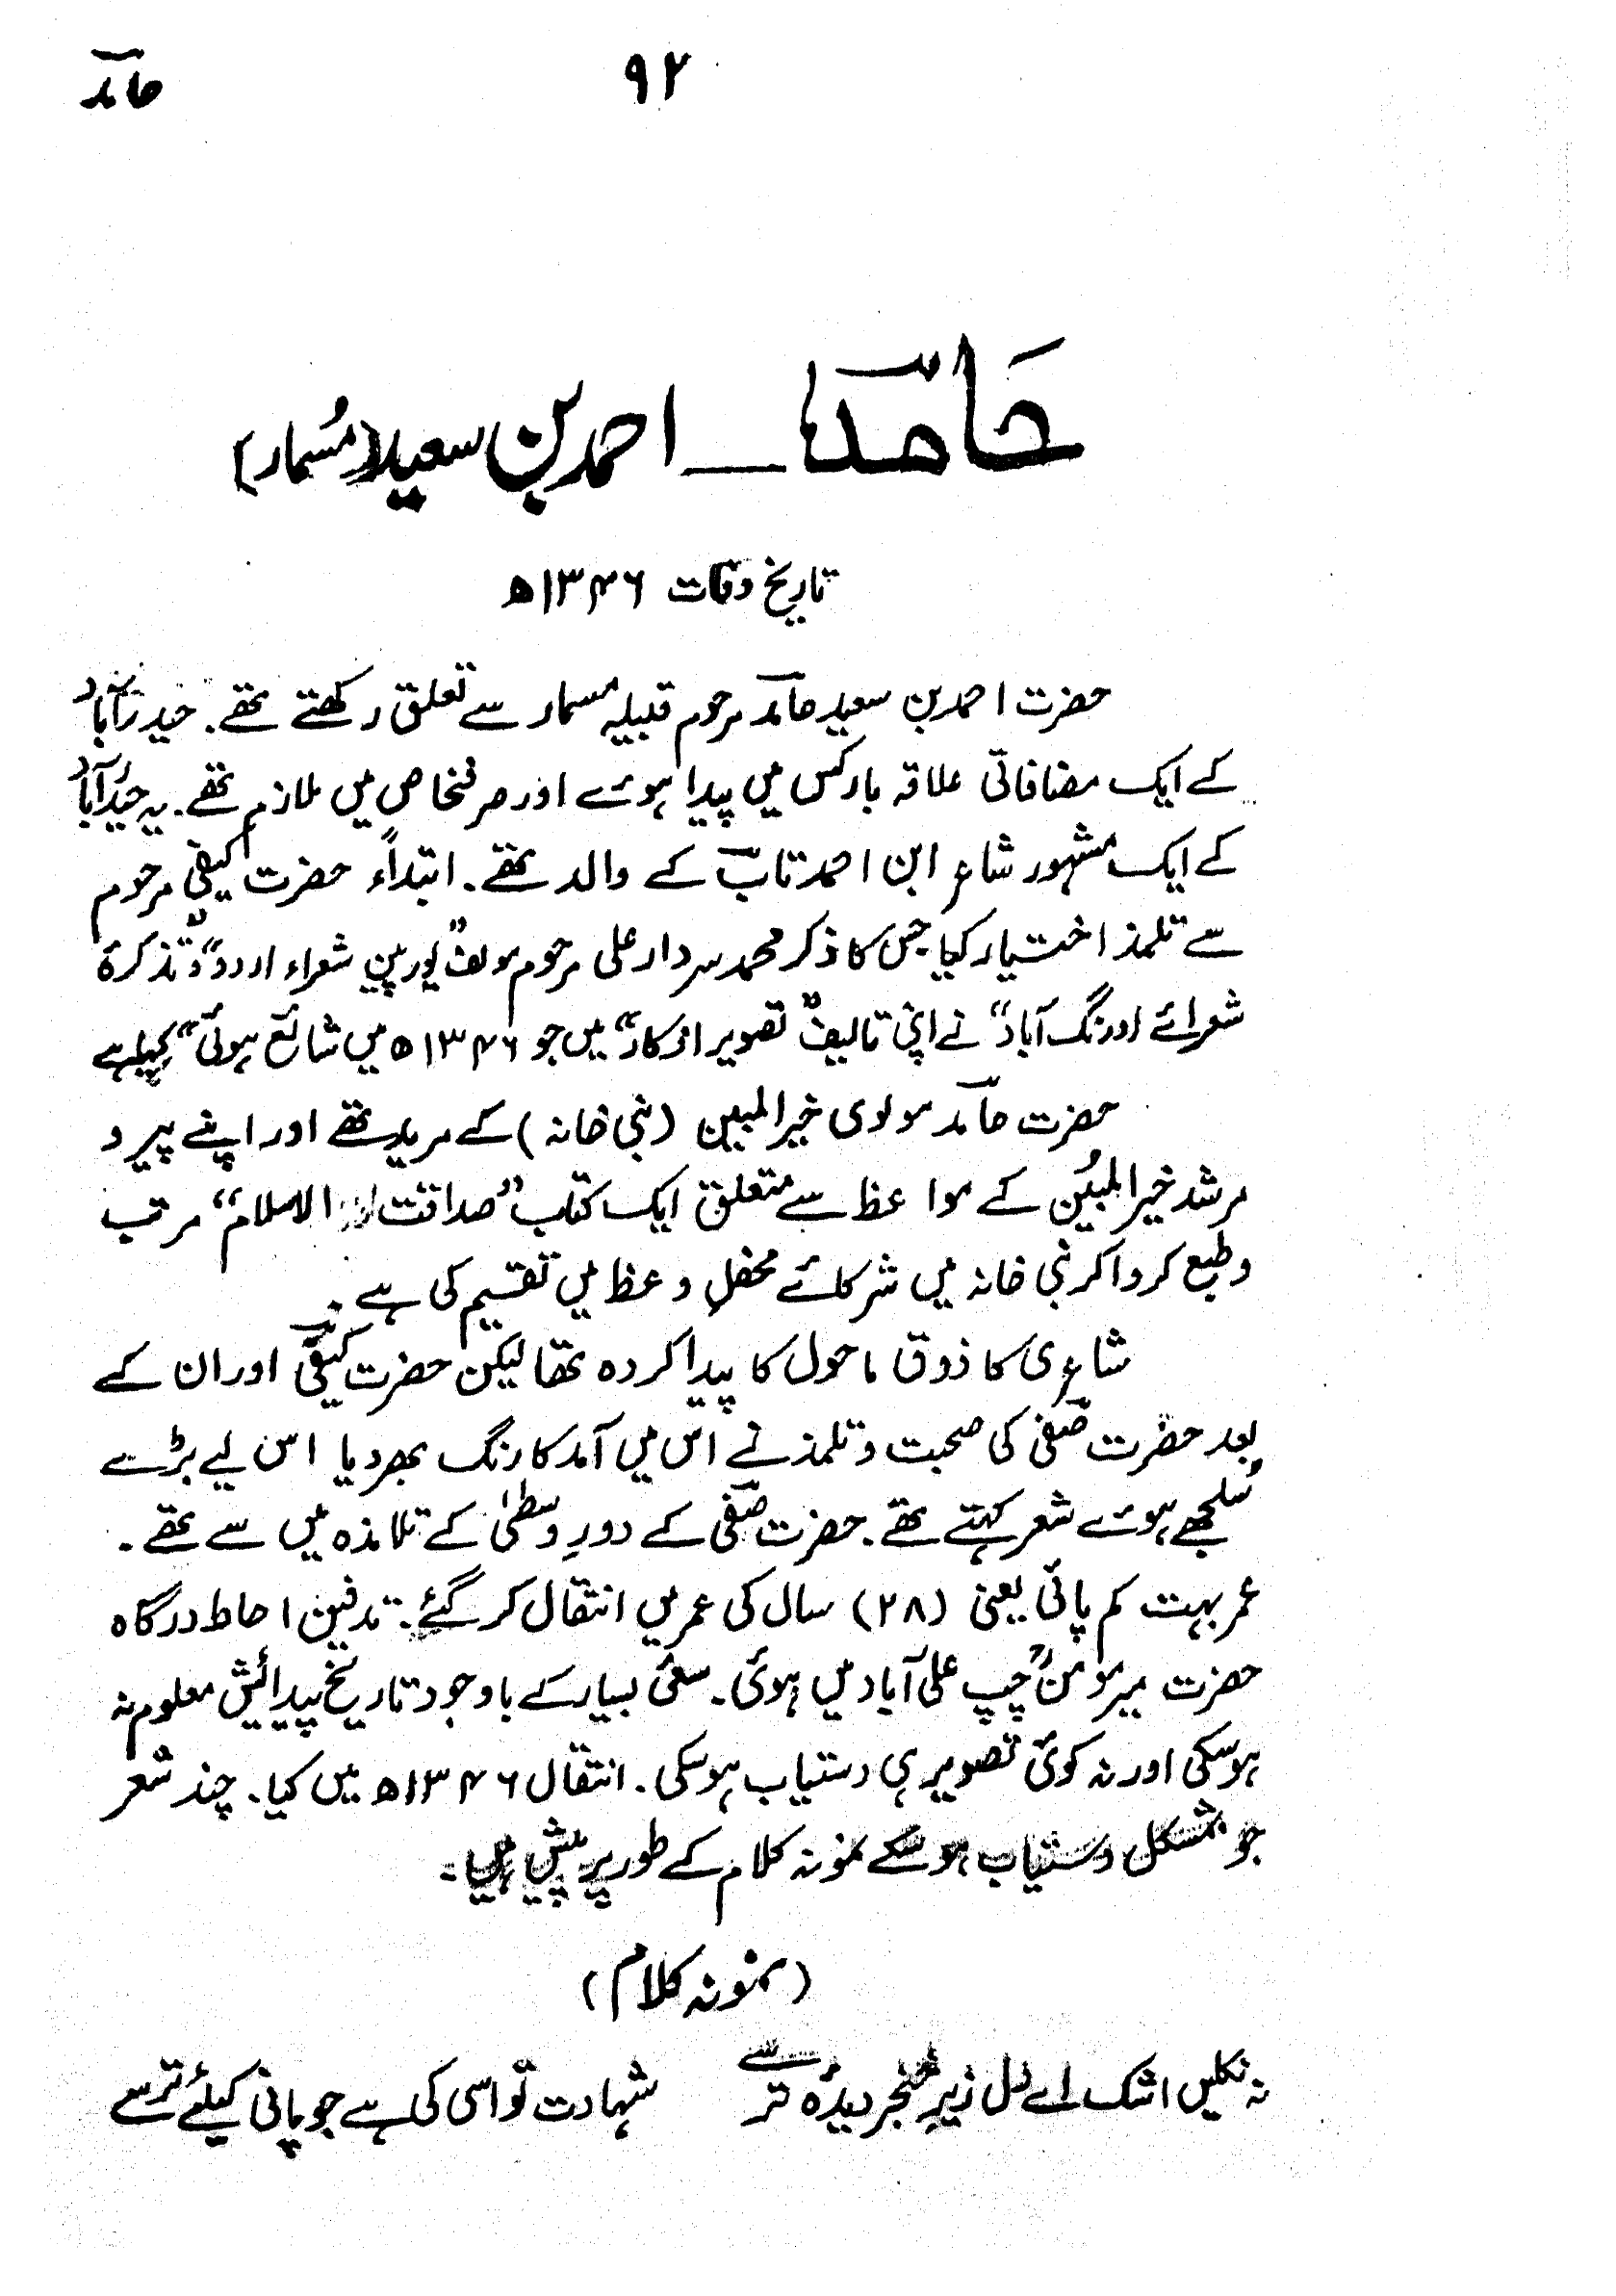 حامد
۹۲
حامد ــ احمد بن سعید (مُسمار)
تاریخ وفات ۱۳۴۶ھ
حضرت احمد بن سعید حامد مرحوم قبیلہ مسمار سے تعلق رکھتے تھے۔ حیدرآباد
کے ایک مضافاتی علاقہ بارکس میں پیدا ہوے اور صرفخاص میں ملازم تھے۔ یہ حیدرآباد
کے ایک مشہور شاعر ابن احمد تاب کے والد تھے۔ ابتداً حضرت کیفی مرحوم
سے تلمذ اختیار کیا جس کا ذکر محمد سردار علی مرحوم مولف ”یورپین شعراء اردو“ و ”تذکرۂ
شعرائے اورنگ آباد“ نے اپنی تالیف ”تصویر افکار“ میں جو ۱۳۴۶ھ میں شائع ہوئی“ کیا ہے
حضرت حامد مولوی خیرالمبین (نبی خانہ) کے مرید تھے اور اپنے پیر و
مرشد خیرالمبُین کے موا عظ سے متعلق ایک کتاب ”صداقت الاسلام“ مرتب
و طبع کروا کر نبی خانہ میں شرکائے محفلِ وعظ میں تقسیم کی ہے۔
شاعری کا ذوق ماحول کا پیدا کردہ تھا لیکن حضرت کیفی اور ان کے
بعد حضرت صفی کی صحبت و تلمذ نے اس میں آمد کا رنگ بھر دیا اس لیے بڑے
سُلجھے ہوے شعر کہتے تھے۔ حضرت صفی کے دورِ وسطیٰ کے تلامذہ میں سے تھے۔
عمر بہت کم پائی یعنی (۲۸) سال کی عمر میں انتقال کر گئے۔ تدفین احاطہ درگاہ
حضرت میر مومن چپ علی آباد میں ہوئی۔ سعئ بسیار کے باوجود تاریخ پیدائش معلوم نہ
ہوسکی اور نہ کوئی تصویر ہی دستیاب ہوسکی۔ انتقال ۱۳۴۶ھ میں کیا۔ چند شعر
جو بمشکل دستیاب ہو سکے نمونہ کلام کے طور پر پیش ہیں۔
(نمونہ کلام)
نہ نکلیں اشک اے دل زیرِ خنجر دیدۂ تر سے شہادت تو اسی کی ہے جو پانی کیلئے ترسے